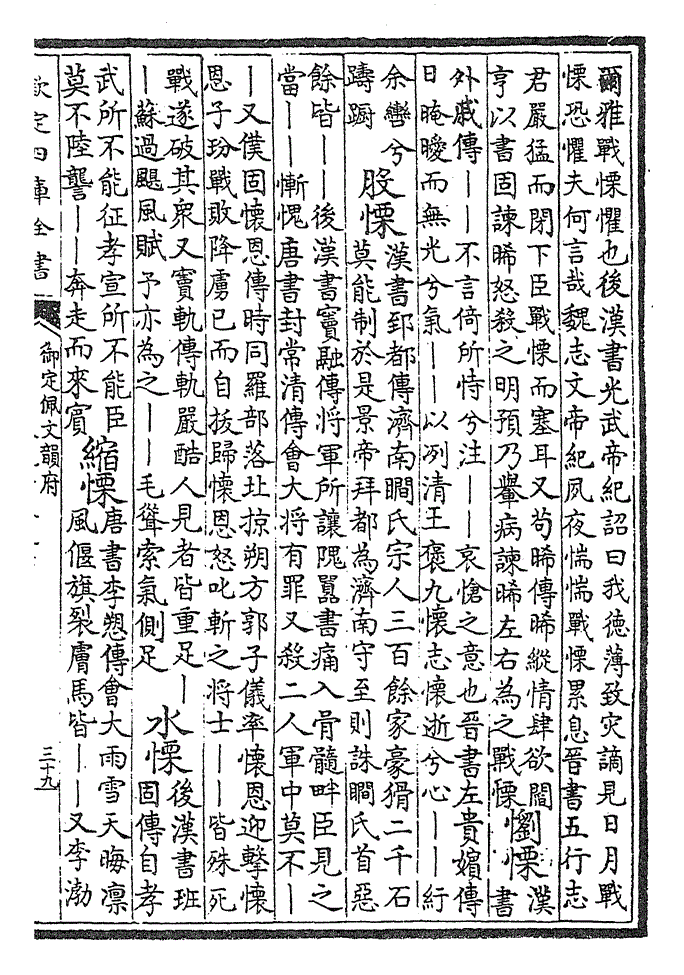 爾雅戰慄懼也後漢書光武帝紀詔曰我德薄致灾謫見日月戰
慄恐懼夫何言哉魏志文帝紀夙夜惴惴戰慄累息晉書五行志
君嚴猛而閉下臣戰慄而塞耳又苟晞傳晞縱情肆欲閻
亨以書固諫晞怒殺之明預乃轝病諫晞左右為之戰慄
懰慄
漢
書
外戚傳——不言倚所恃兮注——哀愴之意也晉書左貴嬪傳
日晻曖而無光兮氣——以冽清王褒九懷志懷逝兮心——紆
余轡兮
躊躕
股慄
漢書郅都傳濟南瞯氏宗人三百餘家豪猾二千石
莫能制於是景帝拜都為濟南守至則誅瞯氏首惡
餘皆——後漢書竇融傳将軍所讓隗囂書痛入骨髓畔臣見之
當——慚愧唐書封常清傳會大将有罪又殺二人軍中莫不—
—又僕固懷恩傳時同羅部落北掠朔方郭子儀率懷恩迎擊懷
恩子玢戰敗降虜已而自拔歸懷恩怒叱斬之将士——皆殊死
戰遂破其衆又竇軌傳軌嚴酷人見者皆重足—
—蘇過颶風賦予亦為之——毛聳索氣側足
水慄
後漢書班
固傳自孝
武所不能征孝宣所不能臣
莫不陸讋——奔走而來賓
縮慄
唐書李愬傳會大雨雪天晦凛
風偃旗裂膚馬皆——又李渤
欽定四庫全書
御定佩文韻府
三十九